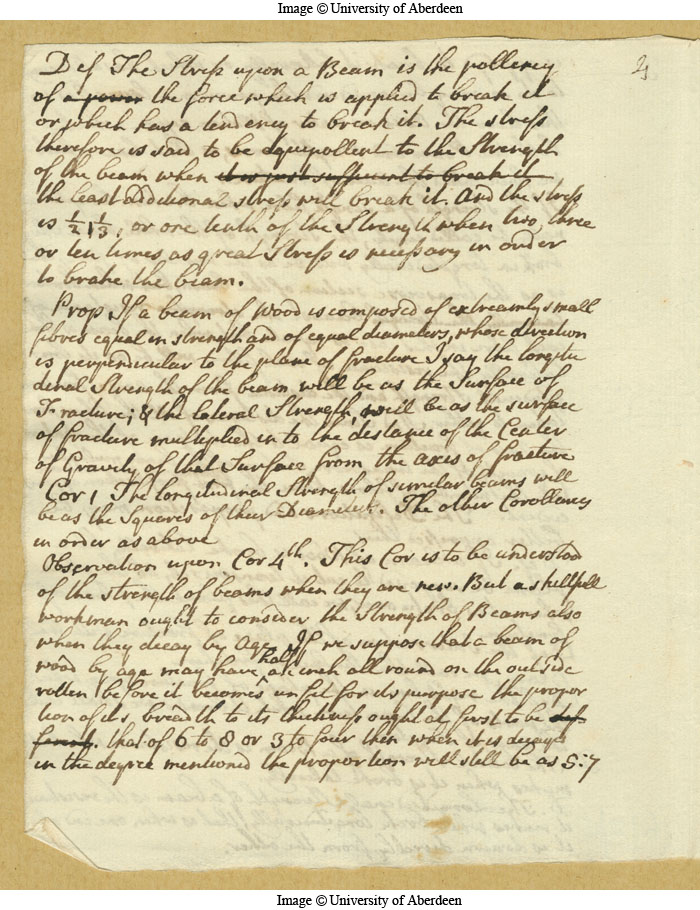 Image © University of Aberdeen
2
Def The Stress upon a Beam is the pollency
of a power the force which is applied to break it
or which has a tendency to break it. The stress
therefore is said to be equipollent to the Strength
of the beam when it is just sufficient to break it
the least additional stress will break it. And the stress
is 1/2, 1/3, or one tenth of the Strength when two, three
or ten times as great Stress is necessary in order
to brake the beam.
Prop If a beam of wood is composed of extreamly small
fibres equal in strength and of equal diameters, whose direction
is perpendicular to the plane of fracture I say the longitu
dinal Strength of the beam will be as the Surface of
Fracture; & the lateral Strength, will be as the surface
of fracture multiplied in to the distance of the Center
of Gravity of that Surface from the axes of fracture
Cor 1 The longitudinal Strength of similar beams will
be as the Squares of their Diameters. The other Corollaries
in order as above
Observation upon Cor 4th. This Cor is to be understood
of the strength of beams when they are new. But a skillfull
workman ought to consider the Strength of Beams also
when they decay by Age. If we suppose that a beam of
wood by age may have half a inch all round on the outside
rotten before it becomes unfit for its purpose the propor
tion of its breadth to its thickness ought at first to be
that of 6 to 8 or 3 to four then when it is decayd
in the degree mentioned the proportion will still be as 5:7
Image © University of Aberdeen